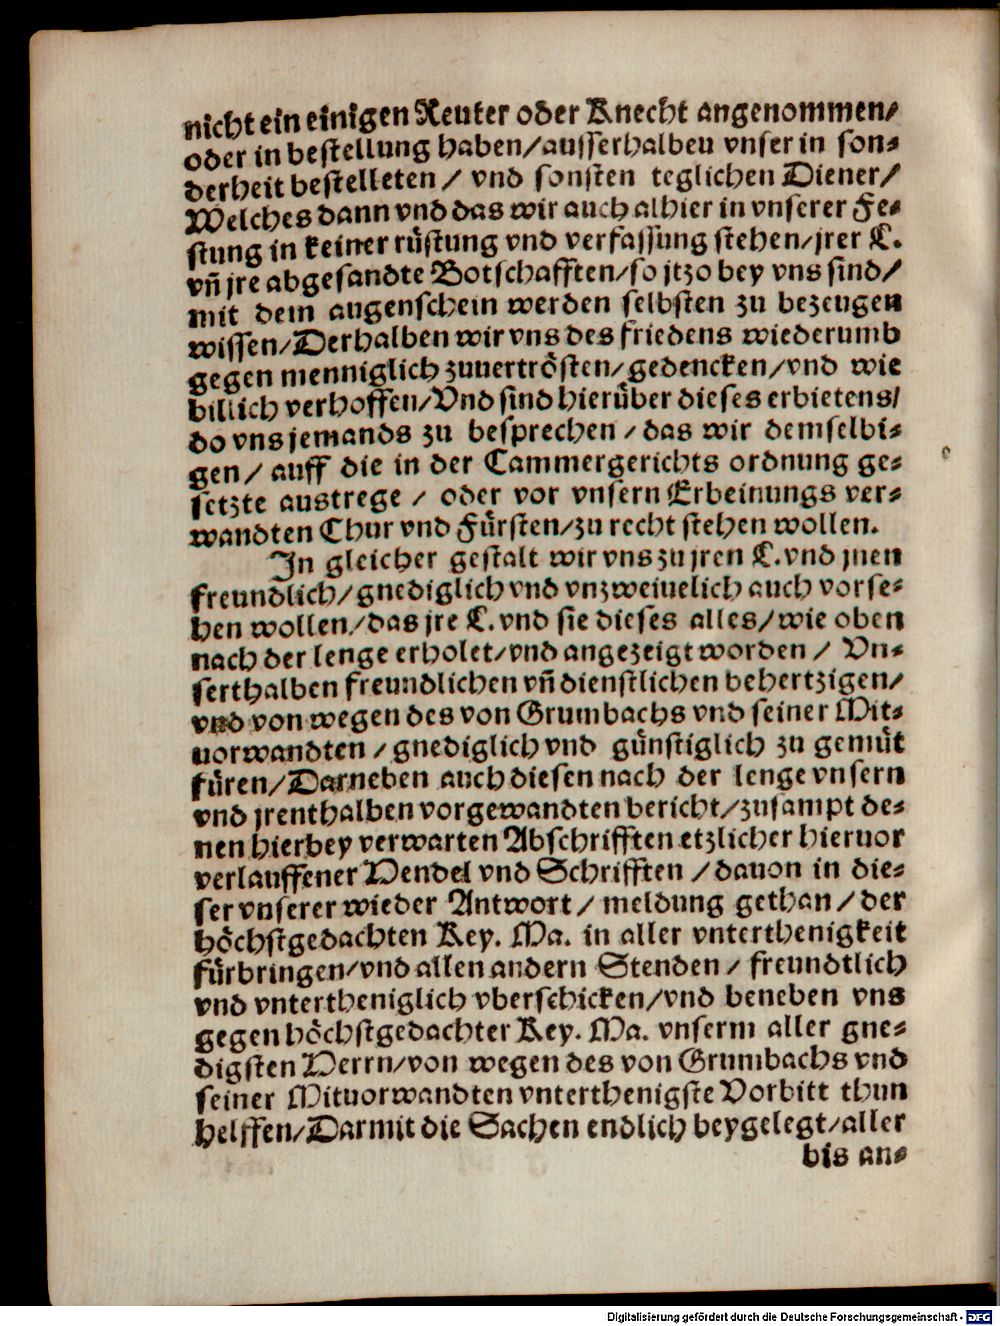 nicht ein einigen Reuter oder Knecht angenommen/
oder in bestellung haben/ausserhalbeu vnser in son⸗
derheit bestelleten / vnd sonsten teglichen Diener/
Welches dann vnd das wir auch alhier in vnserer Fe⸗
stung in keiner rüstung vnd verfassung stehen/jrer L.
vñ jre abgesandte Botschafften/so jtzo bey vns sind/
mit dem augenschein werden selbsten zu bezeugen
wissen/Derhalben wir vns des friedens wiederumb
gegen menniglich zuuertrösten/gedencken/vnd wie
billich verhoffen/Vnd sind hierüber dieses erbietens/
do vns jemands zu besprechen / das wir demselbi⸗
gen/ auff die in der Cammergerichts ordnung ge⸗
setzte austrege / oder vor vnsern Erbeinungs ver⸗
wandten Chur vnd Fürsten/zu recht stehen wollen.
In gleicher gestalt wir vns zu jren L. vnd jnen
freundlich/gnediglich vnd vnzweiuelich auch vorse⸗
hen wollen/das jre L. vnd sie dieses alles/wie oben
nach der lenge erholet/vnd angezeigt worden / Vn⸗
serthalben freundlichen vñ dienstlichen behertzigen/
vnd von wegen des von Grumbachs vnd seiner Mit⸗
uorwandten /gnediglich vnd günstiglich zu gemüt
füren/Darneben auch diesen nach der lenge vnsern
vnd jrenthalben vorgewandten bericht/zusampt de⸗
nen hierbey verwarten Abschrifften etzlicher hieruor
verlauffener Hendel vnd Schrifften /dauon in die⸗
ser vnserer wieder Antwort / meldung gethan / der
höchstgedachten Key. Ma. in aller vnterthenigkeit
fürbringen/vnd allen andern Stenden / freundtlich
vnd vntertheniglich vberschicken/vnd beneben vns
gegen höchstgedachter Key. Ma. vnserm aller gne⸗
digsten Herrn/von wegen des von Grumbachs vnd
seiner Mituorwandten vnterthenigste Vorbitt thun
helffen/Darmit die Sachen endlich beygelegt/aller
bis an⸗
Digitalisierung gefördert durch die Deutsche Forschungsgemeinschaft - DFG